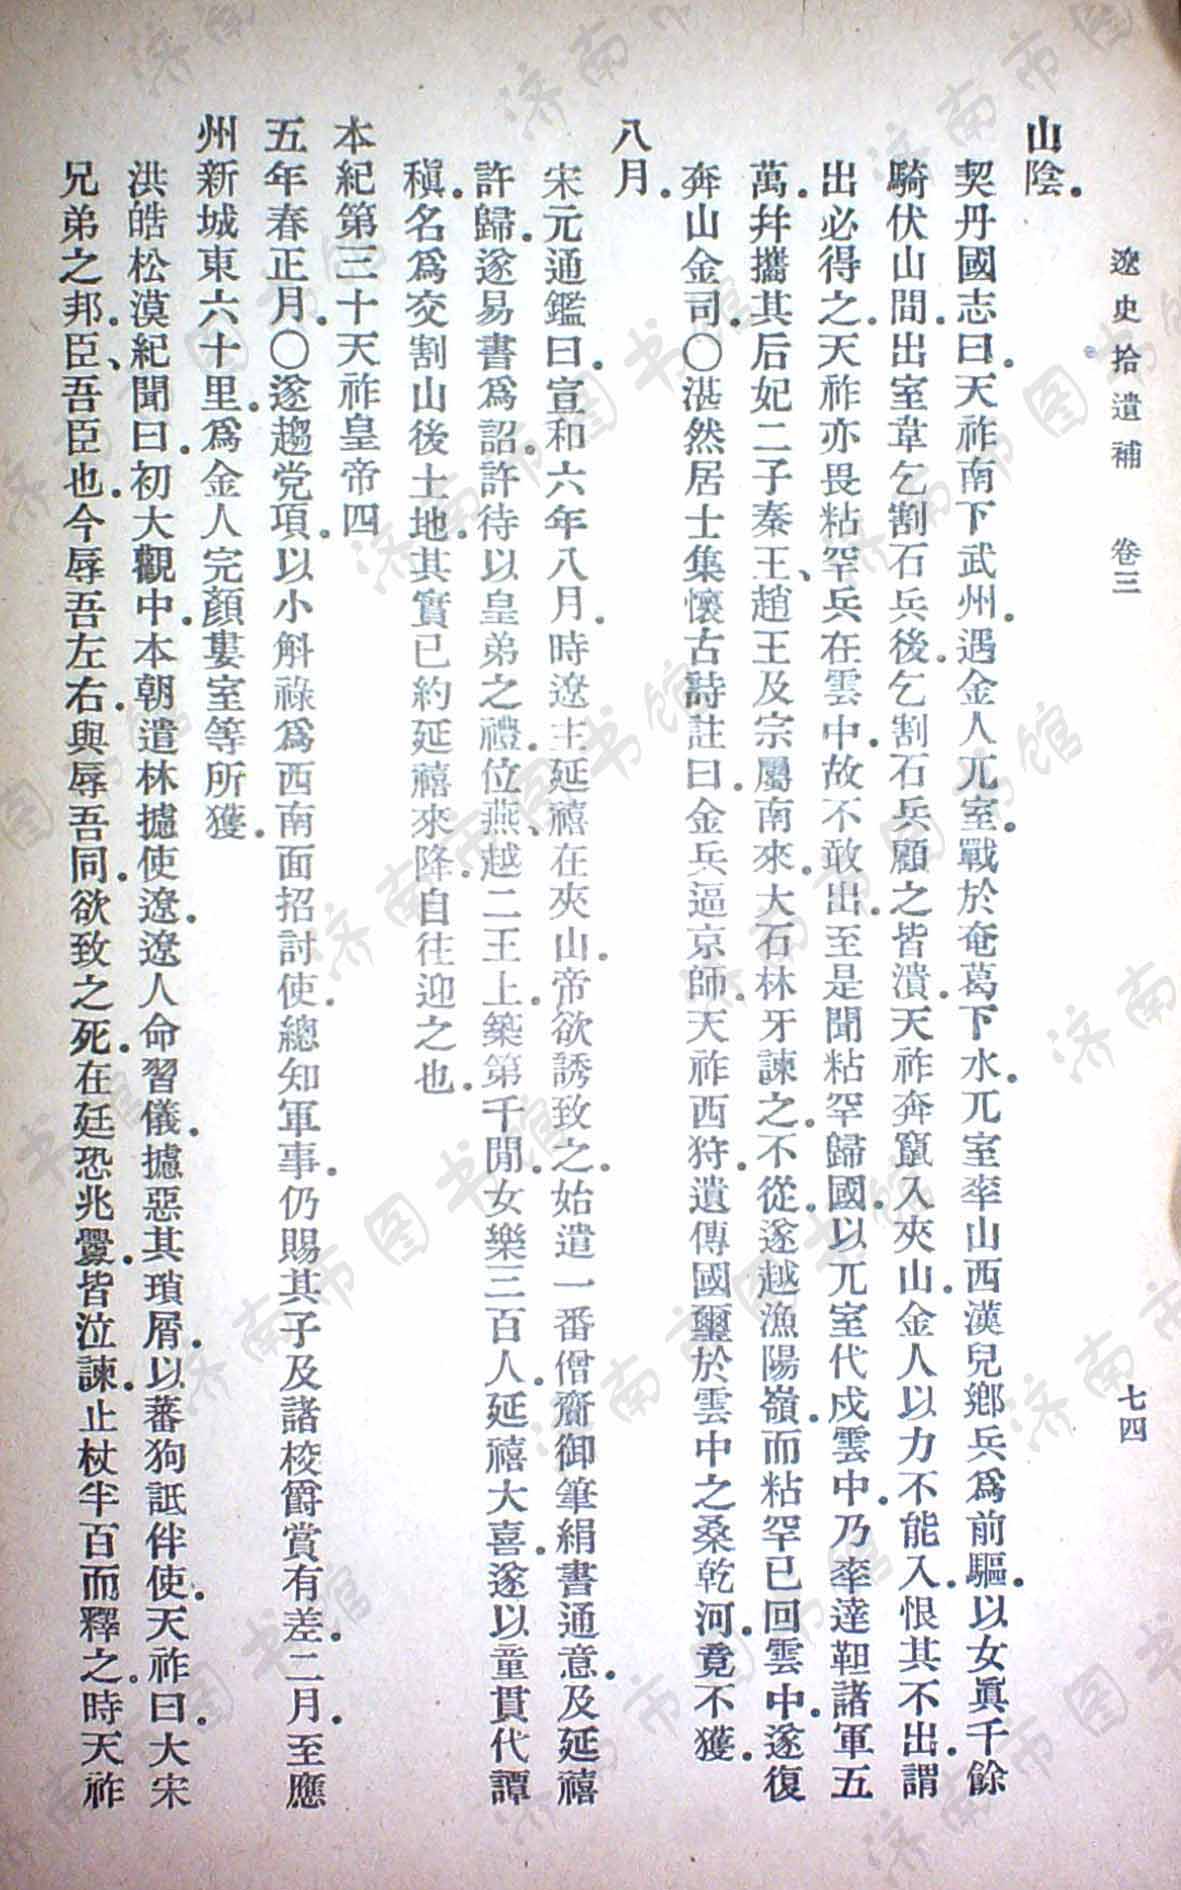 遼史拾遺補　卷三　七四
山陰。
契丹國志曰。天祚南下武州。遇金人兀室。戰於奄葛下水。兀室率山西漢兒鄉兵爲前驅。以女眞千餘
騎伏山間。出室韋乞割石兵後。乞割石兵顧之皆潰。天祚奔竄入夾山。金人以力不能入。恨其不出。謂
出必得之。天祚亦畏粘罕兵在雲中。故不敢出。至是聞粘罕歸國。以兀室代戍雲中。乃率達靼諸軍五
萬。幷攜其后妃二子秦王、趙王及宗屬南來。大石林牙諫之。不從。遂越漁陽嶺。而粘罕已回雲中。遂復
奔山金司。〇湛然居士集懷古詩註曰。金兵逼京師。天祚西狩。遺傳國璽於雲中之桑乾河。竟不獲。
八月。
宋元通鑑曰。宣和六年八月。時遼主延禧在夾山。帝欲誘致之。始遣一番僧齎御筆絹書通意。及延禧
許歸。遂易書爲詔。許待以皇弟之禮。位燕、越二王上。築第千間。女樂三百人。延禧大喜。遂以童貫代譚
稹。名爲交割山後土地。其實已約延禧來降。自往迎之也。
本紀第三十天祚皇帝四
五年春正月。〇遂趨党項。以小斛祿爲西南面招討使。總知軍事。仍賜其子及諸校爵賞有差。二月。至應
州新城東六十里。爲金人完顏婁室等所獲。
洪皓松漠紀聞曰。初大觀中。本朝遣林攄使遼。遼人命習儀。攄惡其瑣屑。以蕃狗詆伴使。天祚曰。大宋
兄弟之邦。臣、吾臣也。今辱吾左右。與辱吾同。欲致之死。在廷恐兆釁。皆泣諫。止杖半百而釋之。時天祚